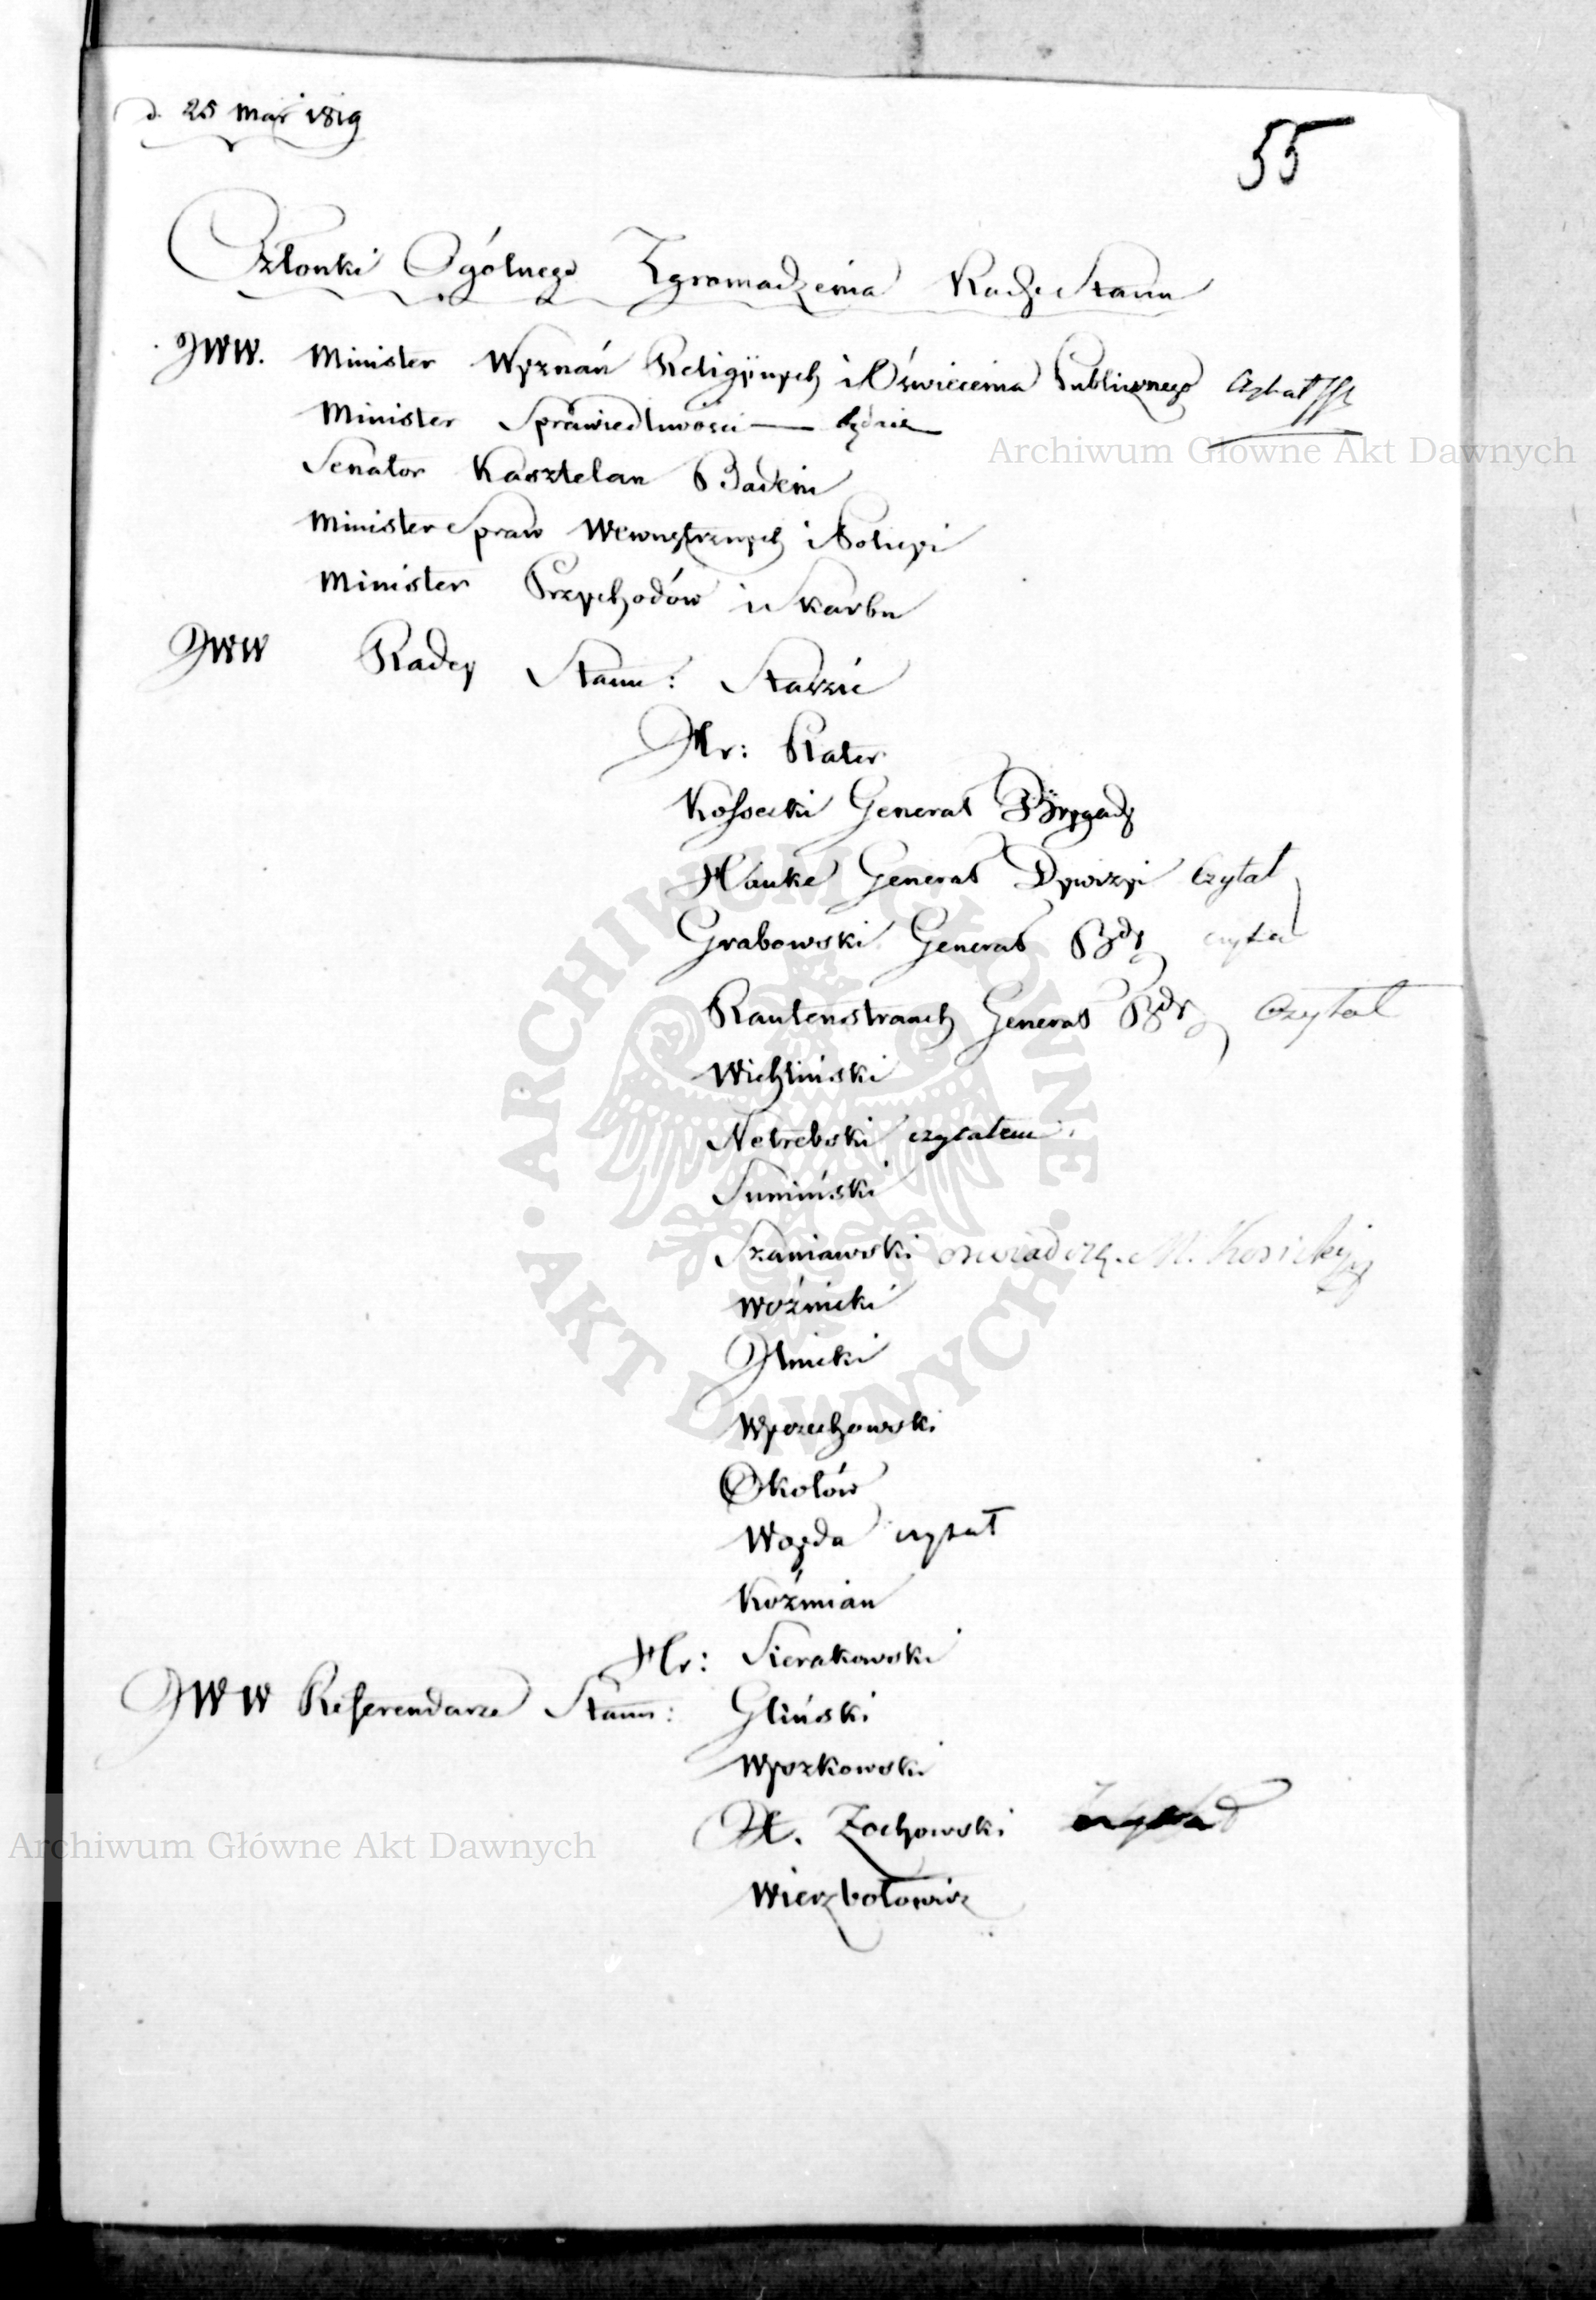 d. 25 Mar 1819
55
Członki Ogólnego Zgromadzenia Rady Stanu
JWW. Minister Wyznań Religijnych i Oświecenia Publicznego Czytał
Minister Sprawiedliwości — będzie
Archiwum Główne Akt Dawnych
Senator Kasztelan Badeni
Minister Spraw Wewnętrznych i Policyi
Minister Przychodów i Skarbu
JWW Radcy Stanu: Staszic
Hr: Plater
Kossecki Generał Brygady
Hauke Generał Dywizyi Czytał
Grabowski Generał Bdy czytał
Rautenstrauch Generał Bdy Czytał
Wichliński
Netrebski czytałem
Sumiński
Szaniawski M. Kosicki
Woźnicki
Ilnicki
Wyczechowski
Okołów
Woyda czytał
Koźmian
Hr: Sierakowski
JWW Referendarze Stanu: Gliński
Wyszkowski
X. Żochowski czytał
Archiwum Główne Akt Dawnych
Wierzbołowicz
ARCHIWUM GŁÓWNE • AKT DAWNYCH •